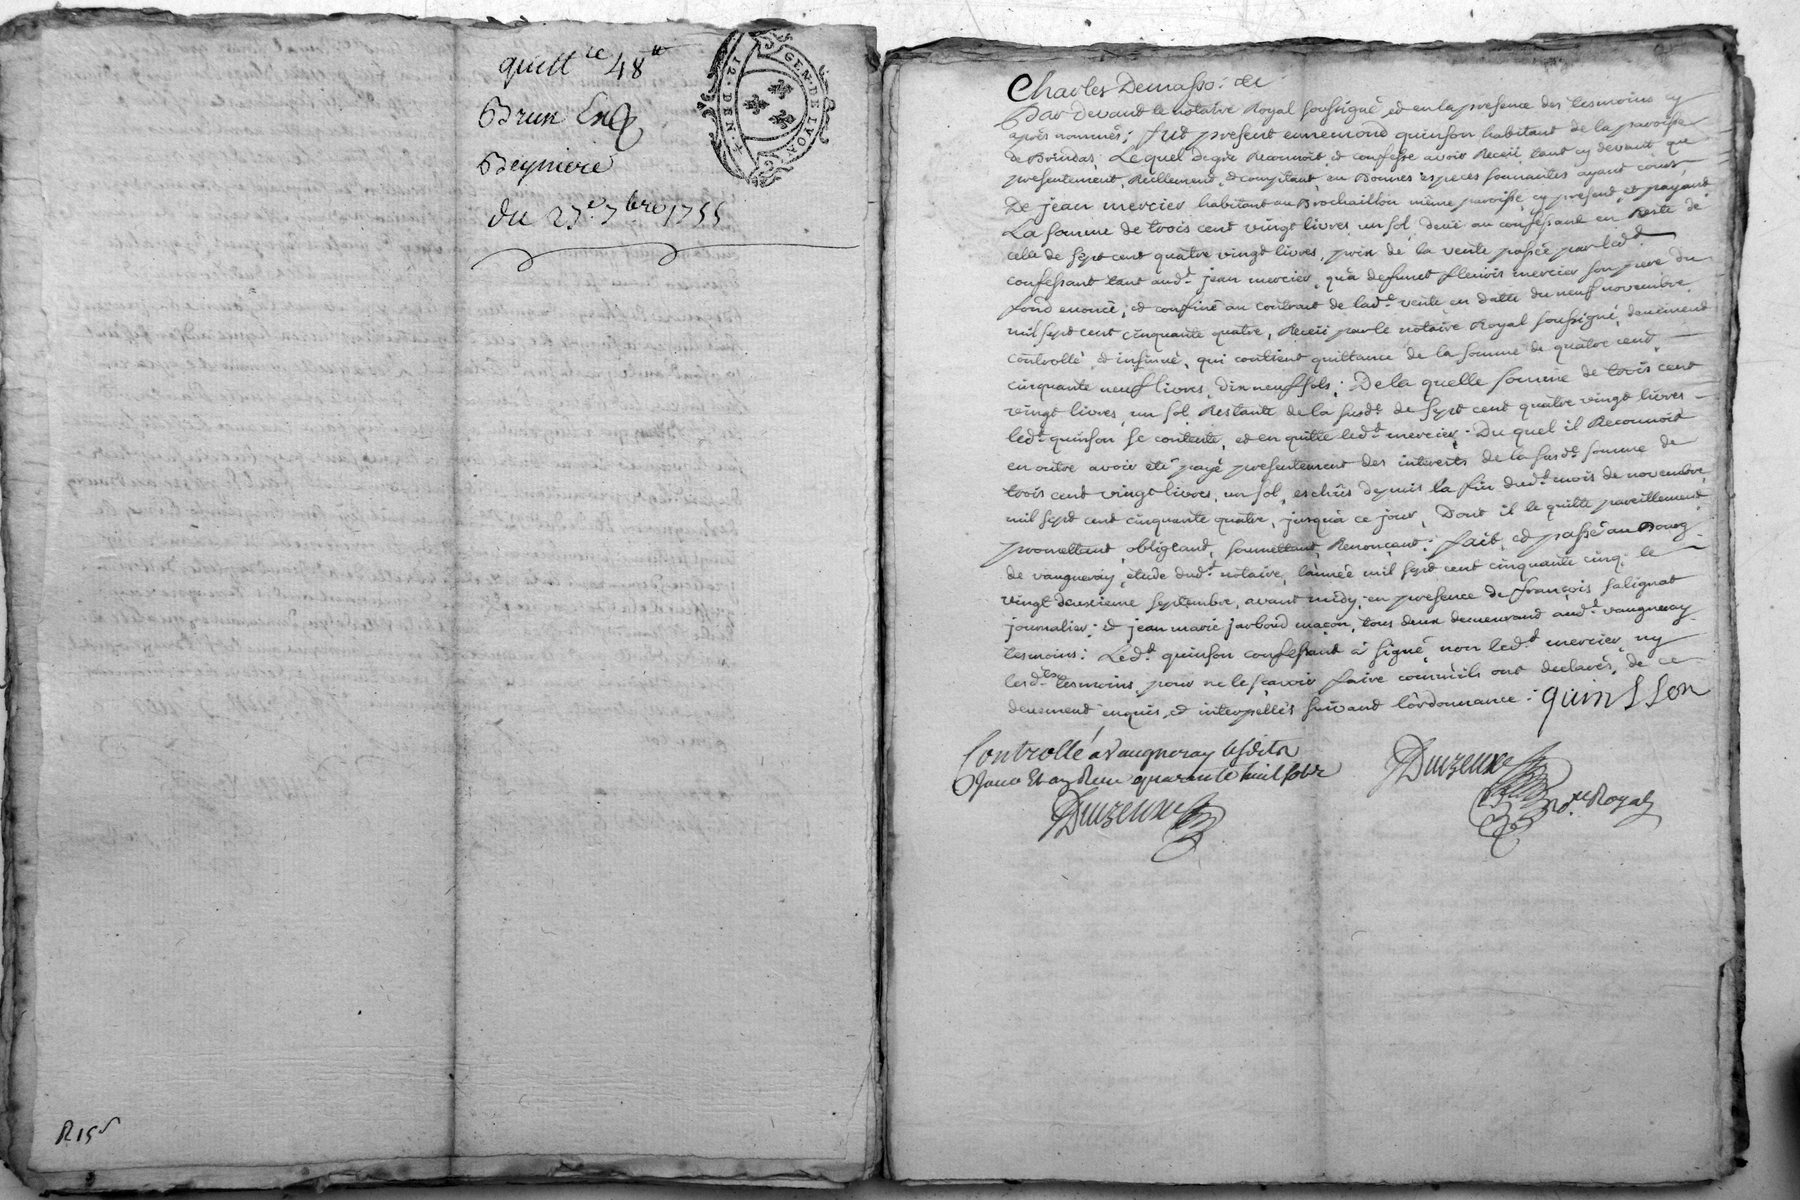 quitt.ce 48 tt
Brun Ex
Beyniere
du 27.e 7bre 1755
12. DEN
GEN. DE LYON
R 15 s
Charles Demasso: &c
Par devant le notaire Royal soussigné, et en la presence des tesmoins cy
après nommés; fut present ennemond quinson habitant de la paroisse
de Brindas, Lequel de gré Reconnoit, et confesse avoir Receü, tant cy devant que
presentement, Reellement, et comptant, en Bonnes especes sonnantes ayant cours
De jean mercier habitant au Brochaillon même paroisse, cy present, et payant,
La somme de trois cent vingt livres un sol, deüe au confessant en Reste de
celle de sept cent quatre vingt livres, prix de la vente passée par led.t
confessant tant aud.t jean mercier, qu'a defunt fleuris mercier son pere du
fond enoncé, et confiné au contrat de lad.e vente en datte du neuf novembre
mil sept cent cinquante quatre, Receü par le notaire Royal soussigné, deuement
controllé, et insinué, qui contient quittance de la somme de quatre cent
cinquante neuf livres, dix neuf sols; De la quelle somme de trois cent
vingt livres, un sol, Restante de la susd.e de sept cent quatre vingt livres
led.t quinson se contente, et en quitte led.t mercier; Du quel il Reconnoit
en outre avoir été payé presentement des interets de la susd.e somme de
trois cent vingt livres, un sol, escheüs depuis la fin dud.t mois de novembre
mil sept cent cinquante quatre, jusqu'a ce jour, Dont il le quitte pareillement,
promettant, obligeand, soumettant, Renonçant; fait, et passé au Bourg
de vaugneray, étude dud.t notaire, l'année mil sept cent cinquante cinq, le
vingt deuxieme septembre, avant midy, en presence de françois salignat
journalier; et jean marie jarboud maçon, tous deux demeurand aud.t vaugneray
tesmoins: Led.t quinson confessant a signé, non led.t mercier, ny
lesd.ts tesmoins, pour ne le sçavoir faire comm'ils ont declarés, de ce
deuement enquis, et interpellés suivant l'ordonnance: quinsson
Controllé a Vaugneray lesdits
Jour Et an Reçu quarante huit sols
Duizeune
Duizeune
No.re Royal